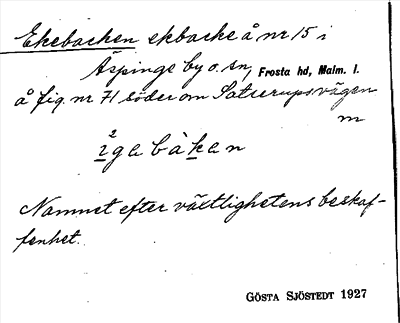 Ekebacken ekbacke å nr 15 i
Äspinge by o. sn, Frosta hd, Malm. l.
å fig. nr 71 söder om Satserupsvägen
m
2
i̲gebàk̲en
Namnet efter växtlighetens beskaf-
fenhet.
GÖSTA SJÖSTEDT 1927